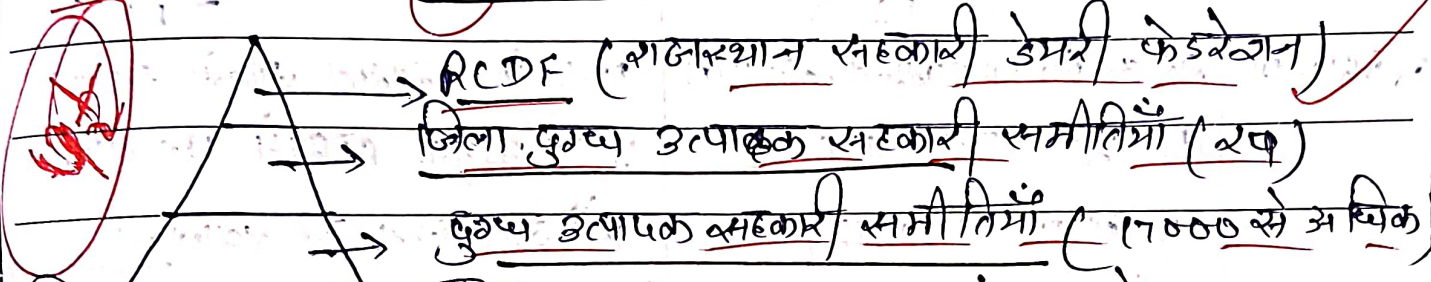 RCDF (राजस्थान सहकारी डेयरी फेडरेशन)
जिला दुग्ध उत्पादक सहकारी समीतियाँ
दुग्ध उत्पादक सहकारी समीतियाँ (17000 से अधिक